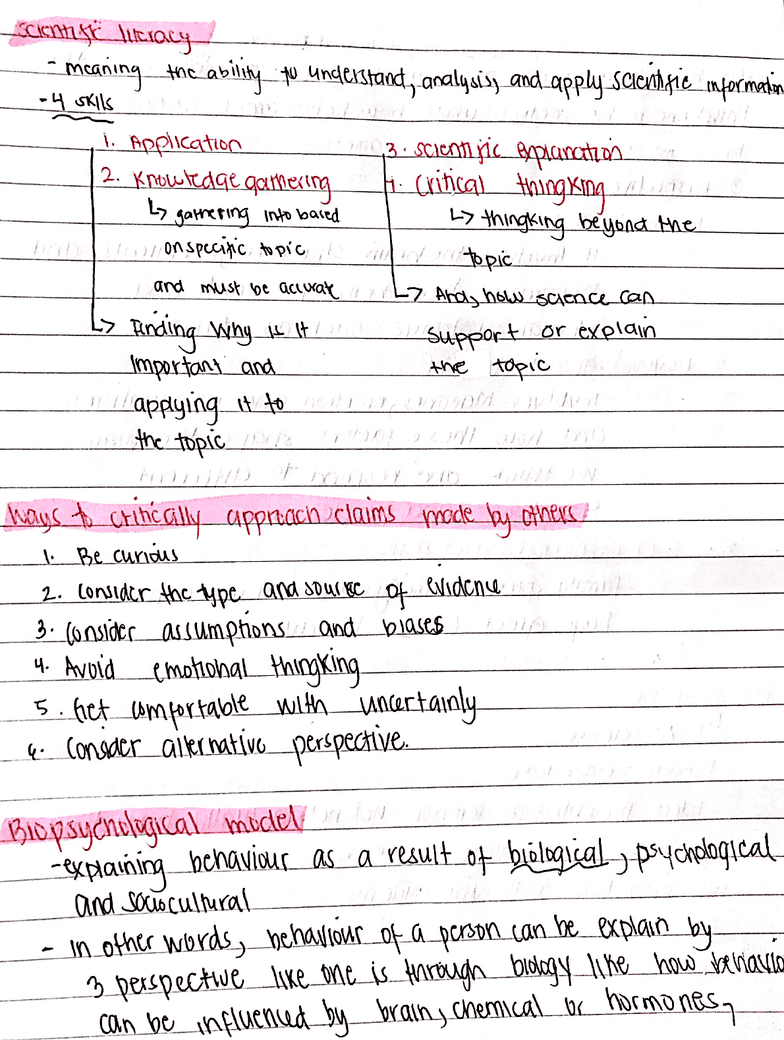 scientific literacy
- meaning the ability to understand, analysis, and apply scientific information
- 4 skills
1. Application
2. Knowledge gathering
↳ gathering info based
on specific topic
and must be accurate
↳ Finding Why is it
important and
applying it to
the topic
3. scientific explanation
4. critical thingking
↳ thingking beyond the
topic
↳ And, how science can
support or explain
the topic
Ways to critically approach claims made by others
1. Be curious
2. consider the type and source of evidence
3. consider assumptions and biases
4. Avoid emotional thingking
5. Get comfortable with uncertainly
6. Consider alternative perspective.
Biopsychological model
- explaining behaviour as a result of biological, psychological
and sociocultural
- in other words, behaviour of a person can be explain by
3 perspective like one is through biology like how behavio
can be influenced by brain, chemical or hormones,